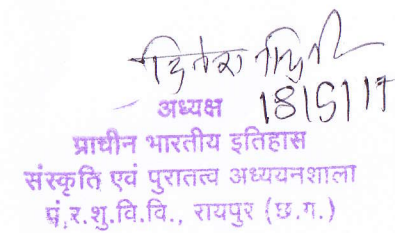 18/5/17
अध्यक्ष
प्राचीन भारतीय इतिहास
संस्कृति एवं पुरातत्व अध्ययनशाला
पं.र.शु.वि.वि., रायपुर (छ.ग.)